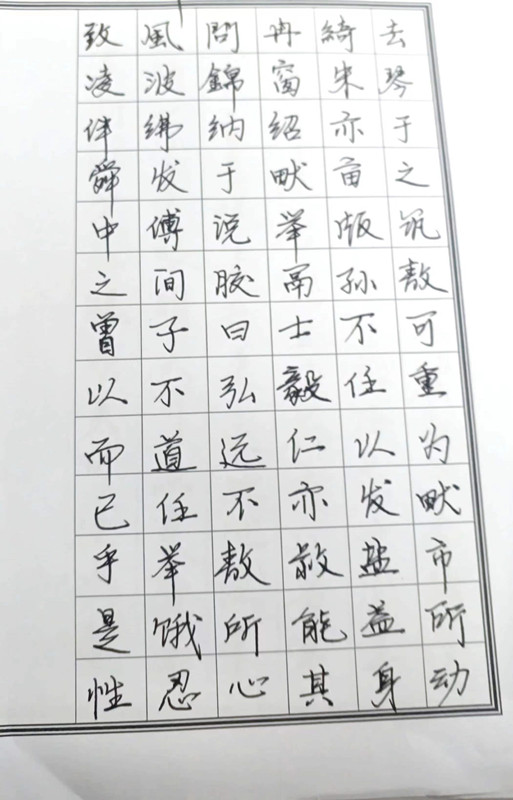 致風問冉綺去
凌波錦窗朱琴
伴绋纳绍亦于
舜发于畎亩之
中傅说举版筑
之间胶鬲孙敖
曾子曰士不可
以不弘毅任重
而道远仁以为
已任不亦发畎
乎举敖盐市
是饿所能益所
性忍心其身动